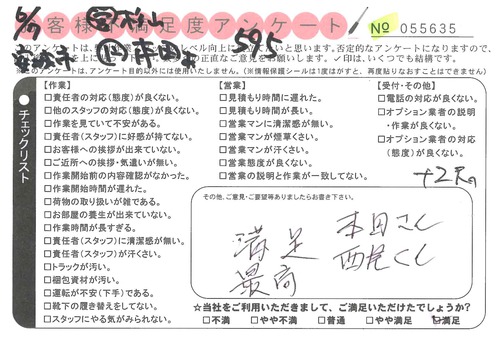 お客様満足度アンケート
№ 055635
6/7
595
※本アンケートは、目的以外には使用いたしません。(※情報保護シールは1度はがすと、再度貼りなおすことはできません)
チェックリスト
【作業】
□責任者の対応(態度)が良くない。
□他のスタッフの対応(態度)が良くない。
□作業を見ていて不安がある。
□責任者(スタッフ)に好感が持てない。
□お客様への挨拶が出来ていない。
□ご近所への挨拶・気遣いが無い。
□作業開始前の内容確認がなかった。
□作業開始時間が遅れた。
□荷物の取り扱いが雑である。
□お部屋の養生が出来ていない。
□作業時間が長すぎる。
□責任者(スタッフ)に清潔感が無い。
□責任者(スタッフ)が汗くさい。
□トラックが汚い。
□梱包資材が汚い。
□運転が不安(下手)である。
□靴下の履き替えをしてない。
□スタッフにやる気がみられない。
【営業】
□見積もり時間に遅れた。
□見積もり時間が長い。
□営業マンに清潔感が無い。
□営業マンが煙草くさい。
□営業マンが汗くさい。
□営業態度が良くない。
□営業の説明と作業が一致してない。
【受付・その他】
□電話の対応が良くない。
□オプション業者の説明
・作業が良くない。
□オプション業者の対応
(態度)が良くない。
その他、ご意見・ご要望等ありましたらお書き下さい。
満足 本田さん
最高 西尾くん
☆当社をご利用いただきまして、ご満足いただけたでしょうか?
□不満 □やや不満 □普通 □やや満足 ☑満足